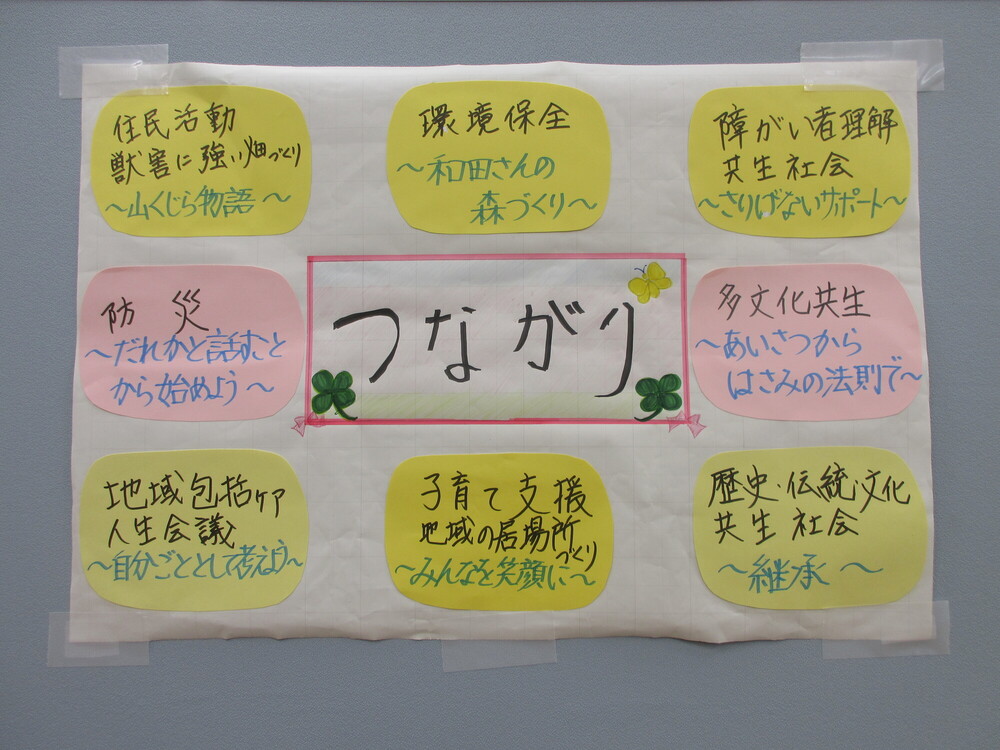 住民活動
獣害に強い畑づくり
～山くじら物語～
環境保全
～和田さんの
森づくり～
障がい者理解
共生社会
～さりげないサポート～
防災
～だれかと話すこと
から始めよう～
つながり
多文化共生
～あいさつから
はさみの法則で～
地域包括ケア
人生会議
～自分ごととして考えよう～
子育て支援
地域の居場所づくり
～みんなを笑顔に～
歴史・伝統・文化
共生社会
～継承～